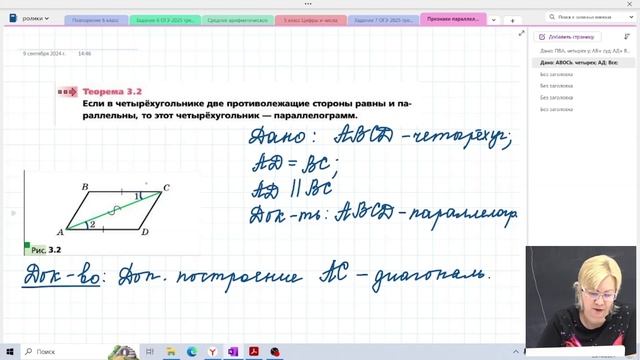 ролики
Повторение 6 класс
Задание 6 ОГЭ-2025 гре...
Среднее арифметическое
5 класс Цифры и числа
Задание 7 ОГЭ-2025 гре...
Признаки параллел...
Поиск в записных книжках
Добавить страницу
9 сентября 2024 г. 14:46
Без заголовка
Без заголовка
Без заголовка
Без заголовка
Теорема 3.2
Если в четырёхугольнике две противолежащие стороны равны и па-
раллельны, то этот четырёхугольник — параллелограмм.
Дано: ABCD - четырёхуг;
AD = BC;
AD || BC
Док-ть: ABCD - параллелогр
B C 1
A 2 D
Рис. 3.2
Док-во: Доп. построение AC - диагональ.
Поиск